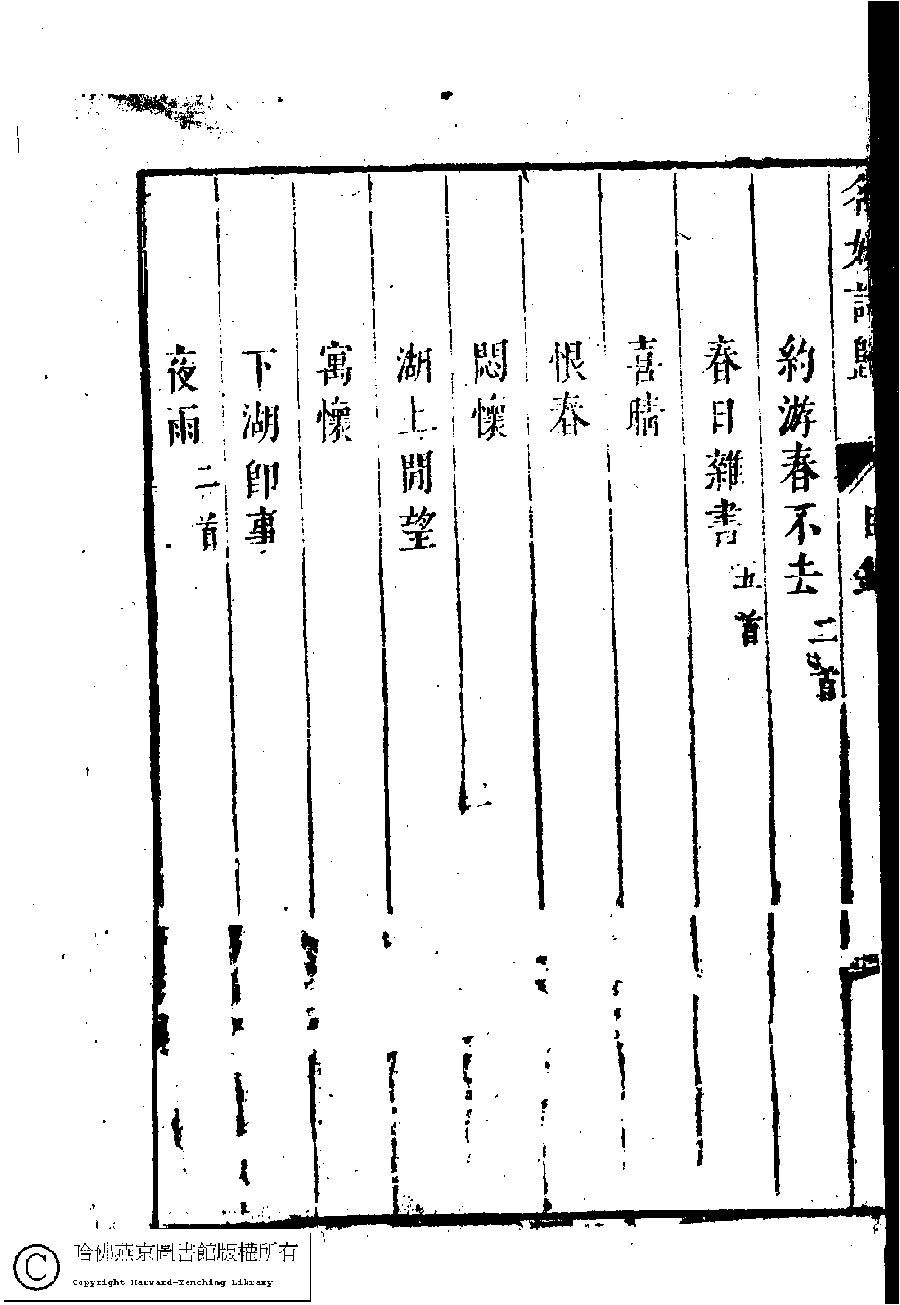 名媛詩歸 目錄
約游春不去 二首
春日雜書 五首
喜晴
恨春
悶懷
湖上閒望
寓懷
下湖卽事
夜雨 二首
哈佛燕京圖書館版權所有
Copyright Harvard-Yenching Library